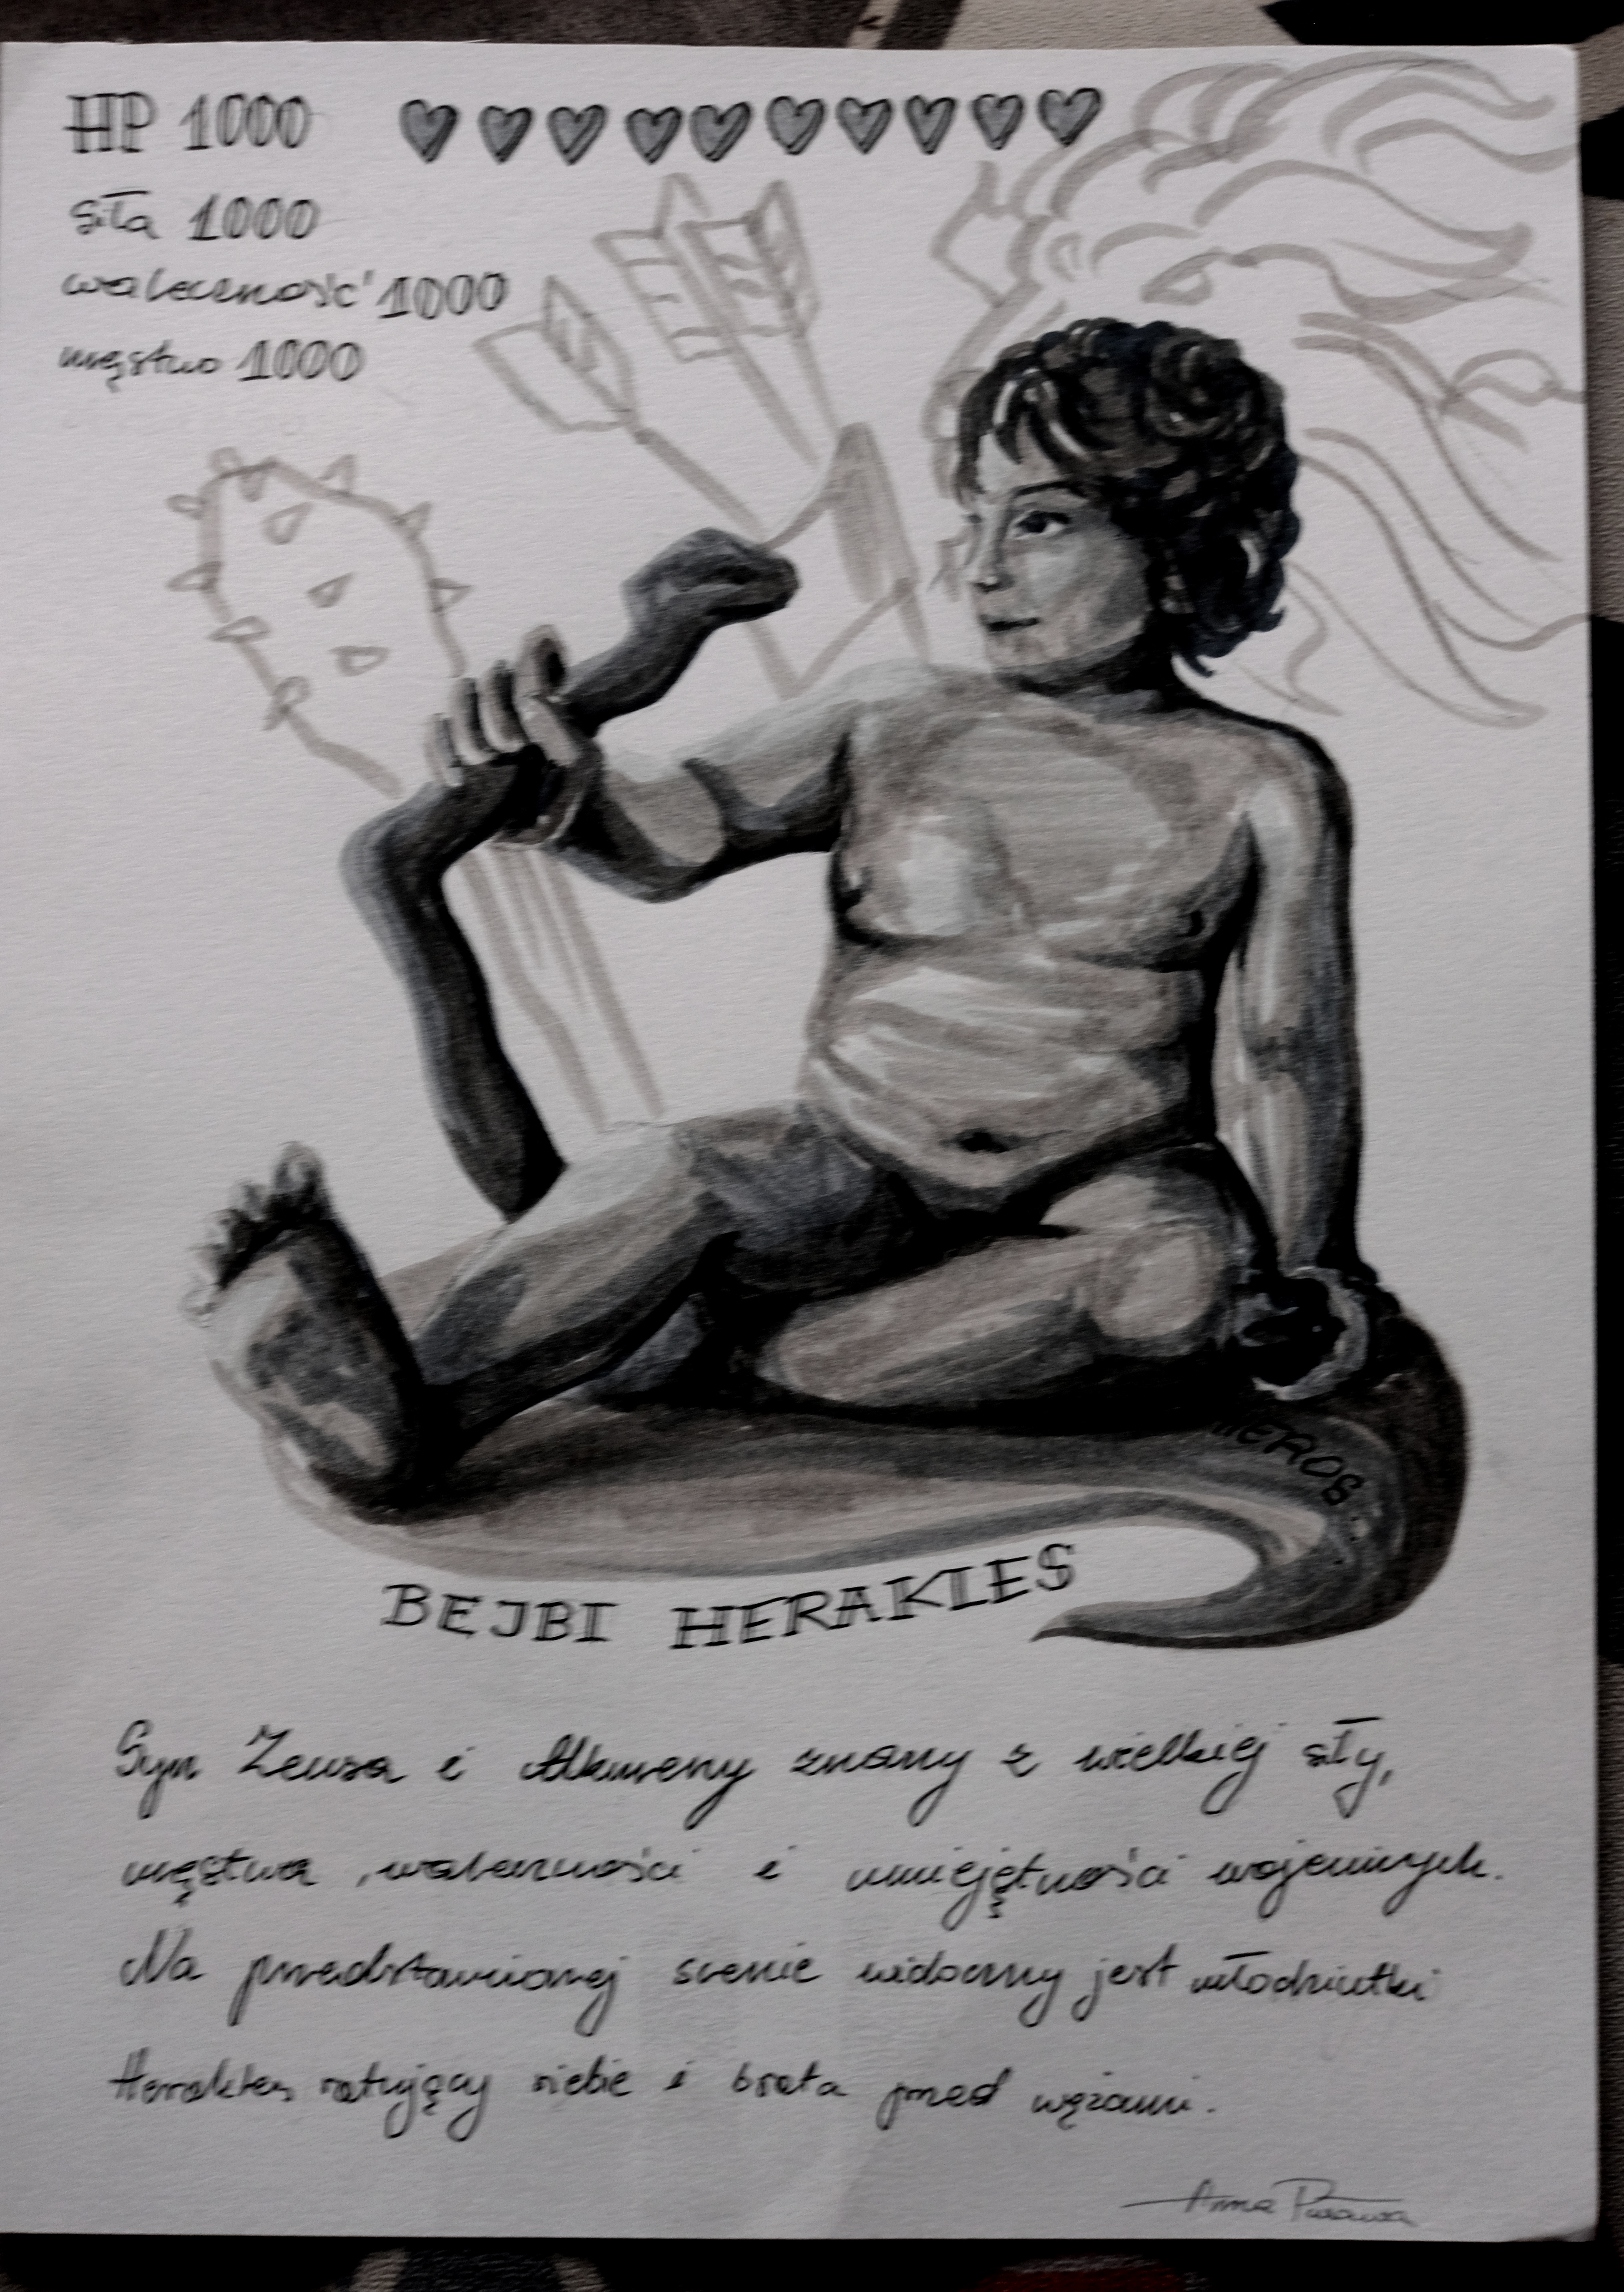 HP 1000
siła 1000
waleczność 1000
męstwo 1000
HEROS
BEJBI HERAKLES
Syn Zeusa i Alkmeny znany z wielkiej siły,
męstwa, waleczności i umiejętności wojennych.
Na przedstawionej scenie widoczny jest młodziutki
Herakles ratujący siebie i brata przed wężami.
Anna